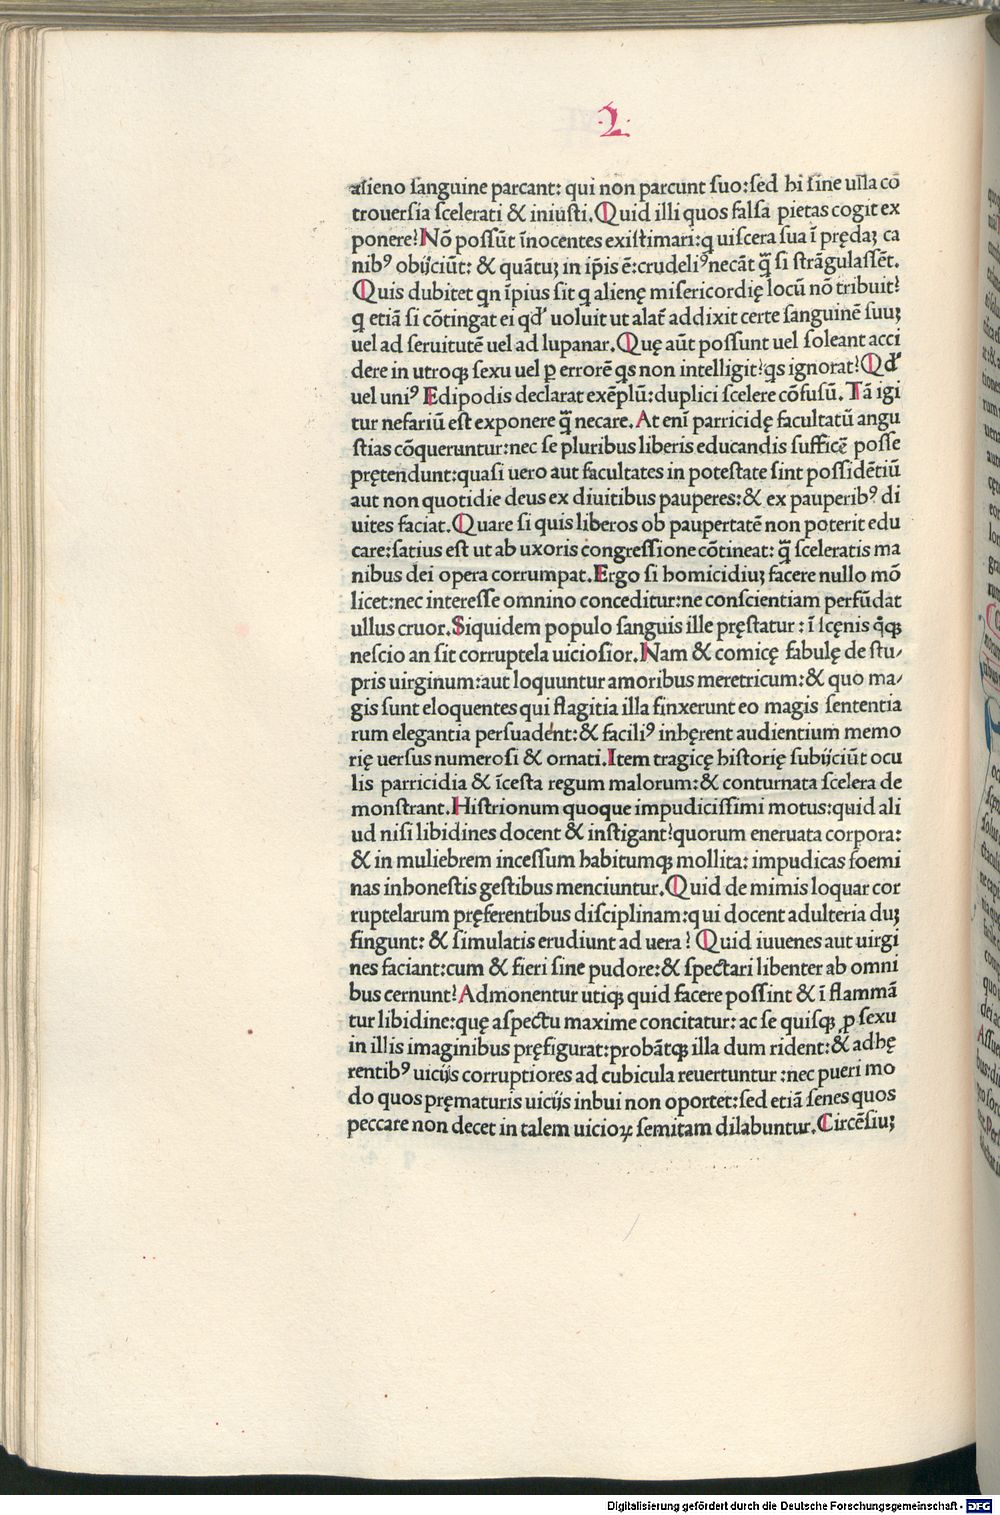 2
alieno ſanguine parcant: qui non parcunt ſuo:ſed hi ſine ulla cō
trouerſia ſcelerati & iniuſti.Quid illi quos falſa pietas cogit ex
ponere?Nō poſſūt īnocentes exiſtimari:q uiſcera ſua ī prędaꝫ ca
nibꝰ obijciūt: & quātuꝫ in ip̄is ē:crudeliꝰ necāt q̄̃ ſi ſtrāgulaſſēt.
Quis dubitet qn īpius ſit q alienę miſericordię locū nō tribuit?
q etiā ſi cōtingat ei qd' uoluit ut alat̄ addixit certe ſanguinē ſuuꝫ
uel ad ſeruitutē uel ad lupanar.Quę aūt poſſunt uel ſoleant acci
dere in utroqꝫ ſexu uel ꝑ errorē qs non intelligit?qs ignorat?Qd'
uel uniꝰ Edipodis declarat exēplū:duplici ſcelere cōfuſū.Tā igi
tur nefariū eſt exponere q̄̃ necare.At enī parricidę facultatū angu
ſtias cōqueruntur:nec ſe pluribus liberis educandis ſufficē poſſe
prętendunt:quaſi uero aut facultates in poteſtate ſint poſſidētiū
aut non quotidie deus ex diuitibus pauperes:& ex pauperibꝰ di
uites faciat.Quare ſi quis liberos ob paupertatē non poterit edu
care:ſatius eſt ut ab uxoris congreſſione cōtineat: q̄̃ ſceleratis ma
nibus dei opera corrumpat.Ergo ſi homicidiuꝫ facere nullo mō
licet:nec intereſſe omnino conceditur:ne conſcientiam perfūdat
ullus cruor.Siquidem populo ſanguis ille pręſtatur : ī ſcęnis q̄qꝫ
neſcio an ſit corruptela uicioſior.Nam & comicę fabulę de ſtu/
pris uirginum:aut loquuntur amoribus meretricum:& quo ma/
gis ſunt eloquentes qui flagitia illa finxerunt eo magis ſententia
rum elegantia perſuadent:& faciliꝰ inhęrent audientium memo
rię uerſus numeroſi & ornati.Item tragicę hiſtorię ſubijciūt ocu
lis parricidia & īceſta regum malorum:& conturnata ſcelera de
monſtrant.Hiſtrionum quoque impudiciſſimi motus:quid ali
ud niſi libidines docent & inſtigant?quorum eneruata corpora:
& in muliebrem inceſſum habitumqꝫ mollita: impudicas foemi
nas inhoneſtis geſtibus menciuntur.Quid de mimis loquar cor
ruptelarum pręferentibus diſciplinam:qui docent adulteria duꝫ
fingunt: & ſimulatis erudiunt ad uera? Quid iuuenes aut uirgi
nes faciant:cum & fieri ſine pudore:& ſpectari libenter ab omni
bus cernunt?Admonentur utiqꝫ quid facere poſſint & ī flammā
tur libidine:quę aſpectu maxime concitatur: ac ſe quiſqꝫ ꝓ ſexu
in illis imaginibus pręfigurat:probātqꝫ illa dum rident:& adhę
rentibꝰ uicijs corruptiores ad cubicula reuertuntur :nec pueri mo
do quos pręmaturis uicijs inbui non oportet:ſed etiā ſenes quos
peccare non decet in talem uicioꝝ ſemitam dilabuntur.Circēſiuꝫ
Digitalisierung gefördert durch die Deutsche Forschungsgemeinschaft - DFG